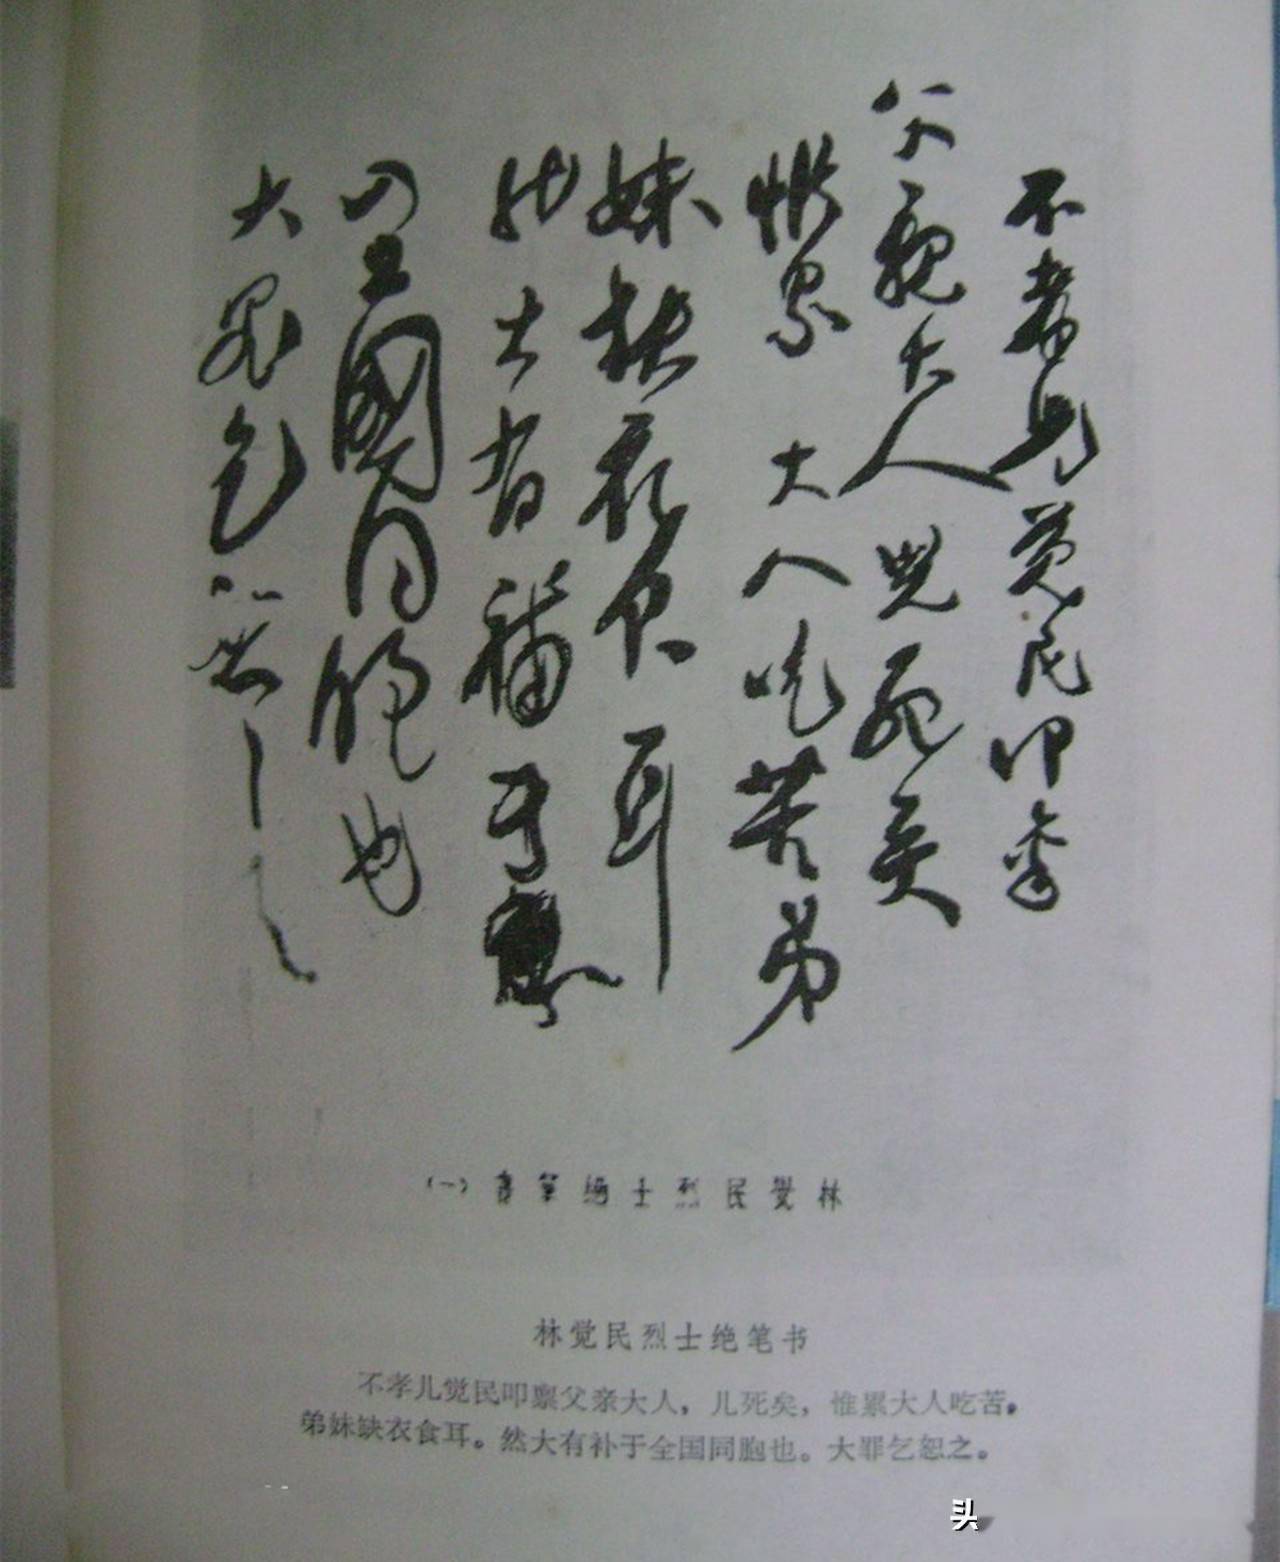 不孝兒覺民叩稟
父親大人兒死矣
惟累 大人吃苦弟
妹缺衣食耳
然大有補于
全國同胞也
大罪乞恕之
林覺民烈士絕筆書(一)
林觉民烈士绝笔书
不孝儿觉民叩禀父亲大人，儿死矣，惟累大人吃苦。
弟妹缺衣食耳。然大有补于全国同胞也。大罪乞恕之。
头